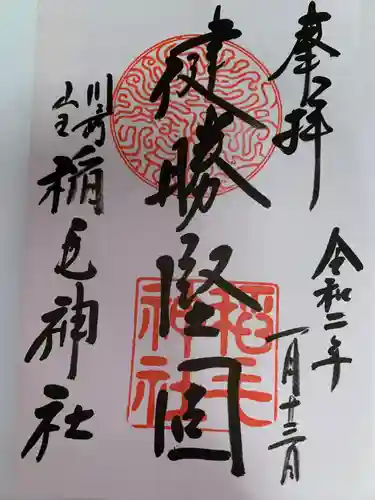 奉拝
令和二年
一月十三日
健勝堅固
川崎
山王
稲毛神社
稲毛
神社